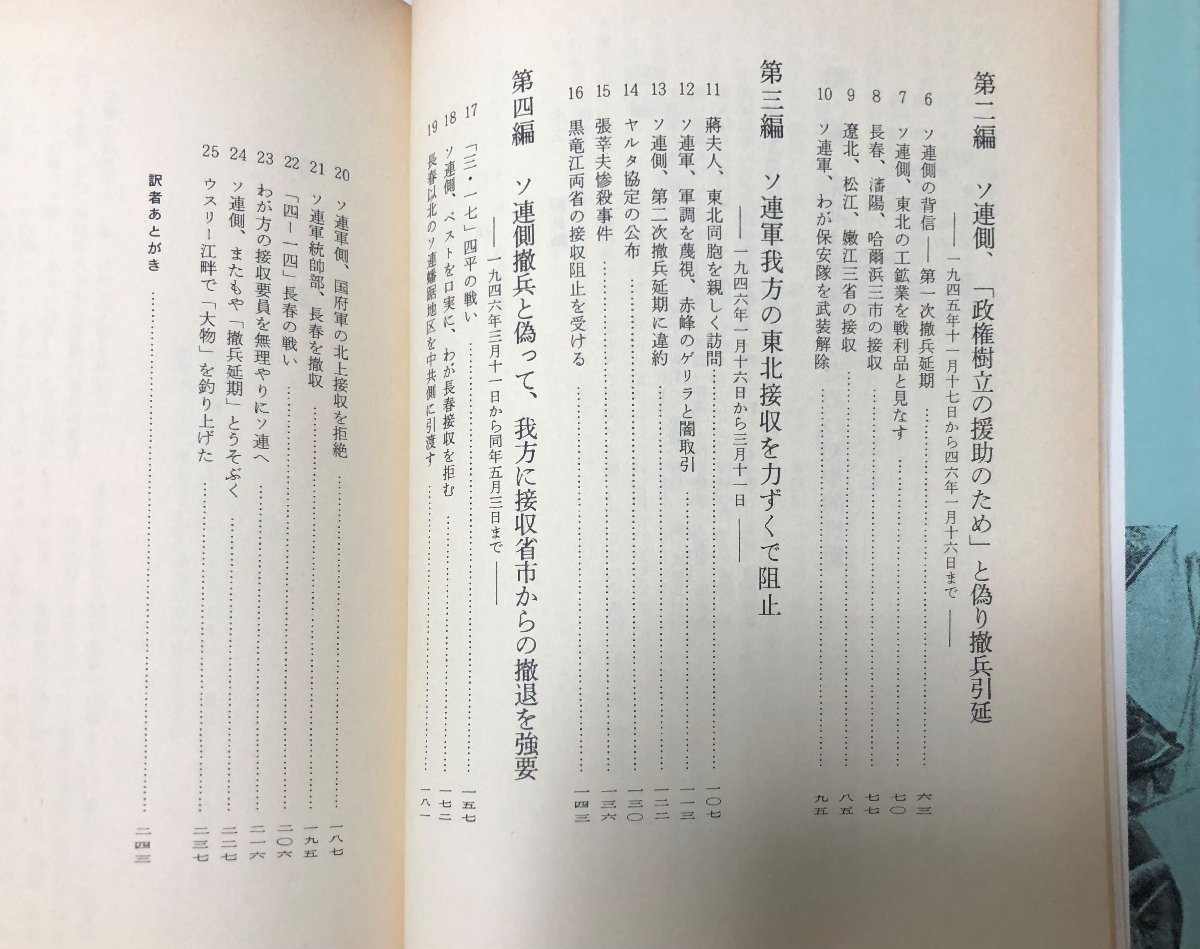 第二編　ソ連側、「政権樹立の援助のため」と偽り撤兵引延
――一九四五年十一月十七日から四六年一月十六日まで――
6　ソ連側の背信――第一次撤兵延期……六三
7　ソ連側、東北の工鉱業を戦利品と見なす……七〇
8　長春、瀋陽、哈爾浜三市の接収……七七
9　遼北、松江、嫩江三省の接収……八五
10　ソ連軍、わが保安隊を武装解除……九五
第三編　ソ連軍我方の東北接収を力ずくで阻止
――一九四六年一月十六日から三月十一日――
11　蔣夫人、東北同胞を親しく訪問……一〇七
12　ソ連軍、軍調を蔑視、赤峰のゲリラと闇取引……一一三
13　ソ連側、第二次撤兵延期に違約……一二二
14　ヤルタ協定の公布……一三〇
15　張莘夫惨殺事件……一三六
16　黒竜江両省の接収阻止を受ける……一四三
第四編　ソ連側撤兵と偽って、我方に接収省市からの撤退を強要
――一九四六年三月十一日から同年五月三日まで――
17　「三・一七」四平の戦い……一五七
18　ソ連側、ペストを口実に、わが長春接収を拒む……一七二
19　長春以北のソ連蟠踞地区を中共側に引渡す……一八一
20　ソ連軍側、国府軍の北上接収を拒絶……一八七
21　ソ連軍統帥部、長春を撤収……一九五
22　「四―一四」長春の戦い……二〇六
23　わが方の接収要員を無理やりにソ連へ……二一六
24　ソ連側、またもや「撤兵延期」とうそぶく……二二七
25　ウスリー江畔で「大物」を釣り上げた……二三七
訳者あとがき……二四三